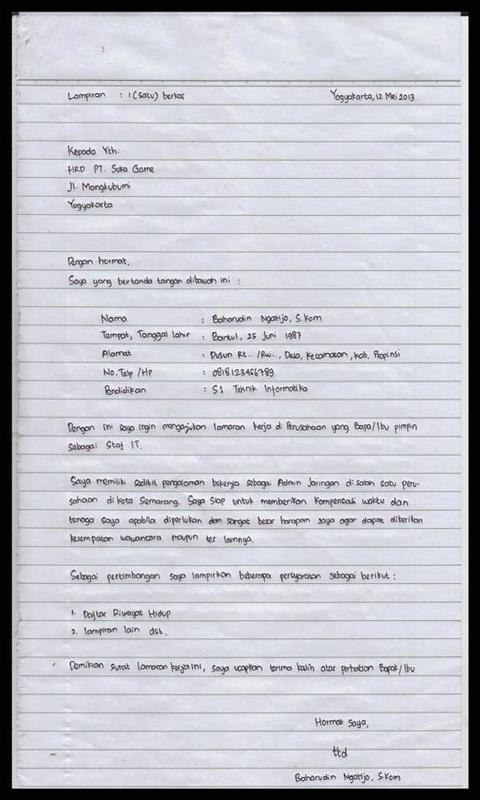 Lampiran : 1 (satu) berkas Yogyakarta, 12 Mei 2013
Kepada Yth.
HRD PT. Suka Game
Jl. Mangkubumi
Yogyakarta
Dengan hormat,
Saya yang bertanda tangan dibawah ini :
Nama : Baharudin Ngatijo, S.Kom
Tempat, Tanggal lahir : Bantul, 25 Juni 1987
Alamat : Dusun Rt.. /Rw.., Desa, Kecamatan, Kab, Propinsi
No. Telp /HP : 0818123456789
Pendidikan : S1 Teknik Informatika
Dengan ini saya ingin mengajukan lamaran kerja di Perusahaan yang Bapa/Ibu pimpin
sebagai Staf IT.
Saya memiliki sedikit pengalaman bekerja sebagai Admin Jaringan di salah satu peru-
sahaan di kota Semarang. Saya siap untuk memberikan kompensasi waktu dan
tenaga saya apabila diperlukan dan sangat besar harapan saya agar dapat diberikan
kesempatan wawancara maupun tes lainnya.
Sebagai pertimbangan saya lampirkan beberapa persyaratan sebagai berikut :
1. Daftar Riwayat Hidup
2. lampiran lain dst.
Demikian surat lamaran kerja ini, saya ucapkan terima kasih atas perhatian Bapak/Ibu
Hormat saya,
ttd
Baharudin Ngatijo, S.Kom